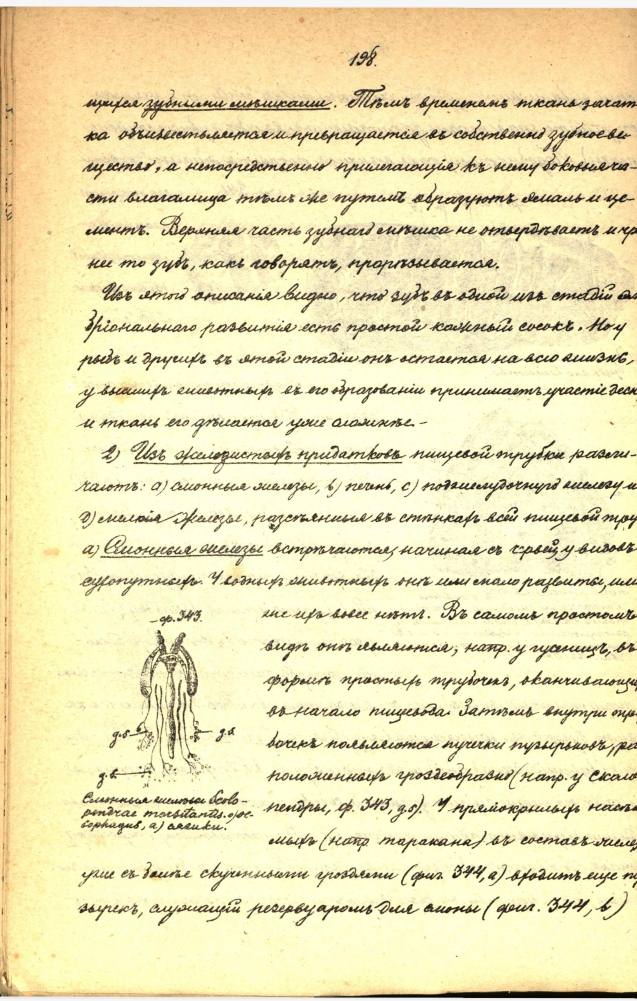 198.
щихся зубными мѣшками. Тѣмъ временемъ ткань зачат-
ка объизвестьляется и превращается въ собственно зубное ве-
щество, а непосредственно прилегающія къ нему боковыя ча-
сти влагалища тѣмъ же путемъ образуютъ эмаль и це-
ментъ. Верхняя часть зубнаго мѣшка не отвердѣваетъ и чр
нее то зубъ, какъ говорятъ, прорѣзывается.
Изъ этого описанія видно, что зубъ въ одной изъ стадій эм
бріональнаго развитія есть простой кожный сосокъ. Но у
рыбъ и другихъ въ этой стадіи онъ остается на всю жизнь,
у высшихъ животныхъ въ его образованіи принимаетъ участіе десн
и ткань его дѣлается уже сложнѣе.-
2) Изъ железистыхъ придатковъ пищевой трубки разли-
чаютъ: а) слюнныя железы, в) печень, с) поджелудочную железу и
d) мелкія железы, разсѣянныя въ стѣнкахъ всей пищевой тру
а) Слюнныя железы встрѣчаются, начиная съ червей, у видовъ
сухопутныхъ. У водныхъ животныхъ онѣ или мало развиты, или
же ихъ вовсе нѣтъ. Въ самомъ простомъ
видѣ онѣ являются, напр. у гусеницъ, въ
формѣ простыхъ трубочекъ, оканчивающи
въ начало пищевода. Затѣмъ внутри тру
бочекъ появляются пучки пузырьковъ, ра
положенныхъ гроздеобразно (напр. у сколо
пендры, ф. 343, д.s). У прямокрылыхъ насѣ
мыхъ (напр. таракана) въ составъ желез
уже съ болѣе скученными гроздями (фиг. 344, а) входитъ еще пу
зырекъ, служащій резервуаромъ для слюны (фиг. 344, b)
-ф. 343.
д.s
д.s
д.s
Слюнныя железы